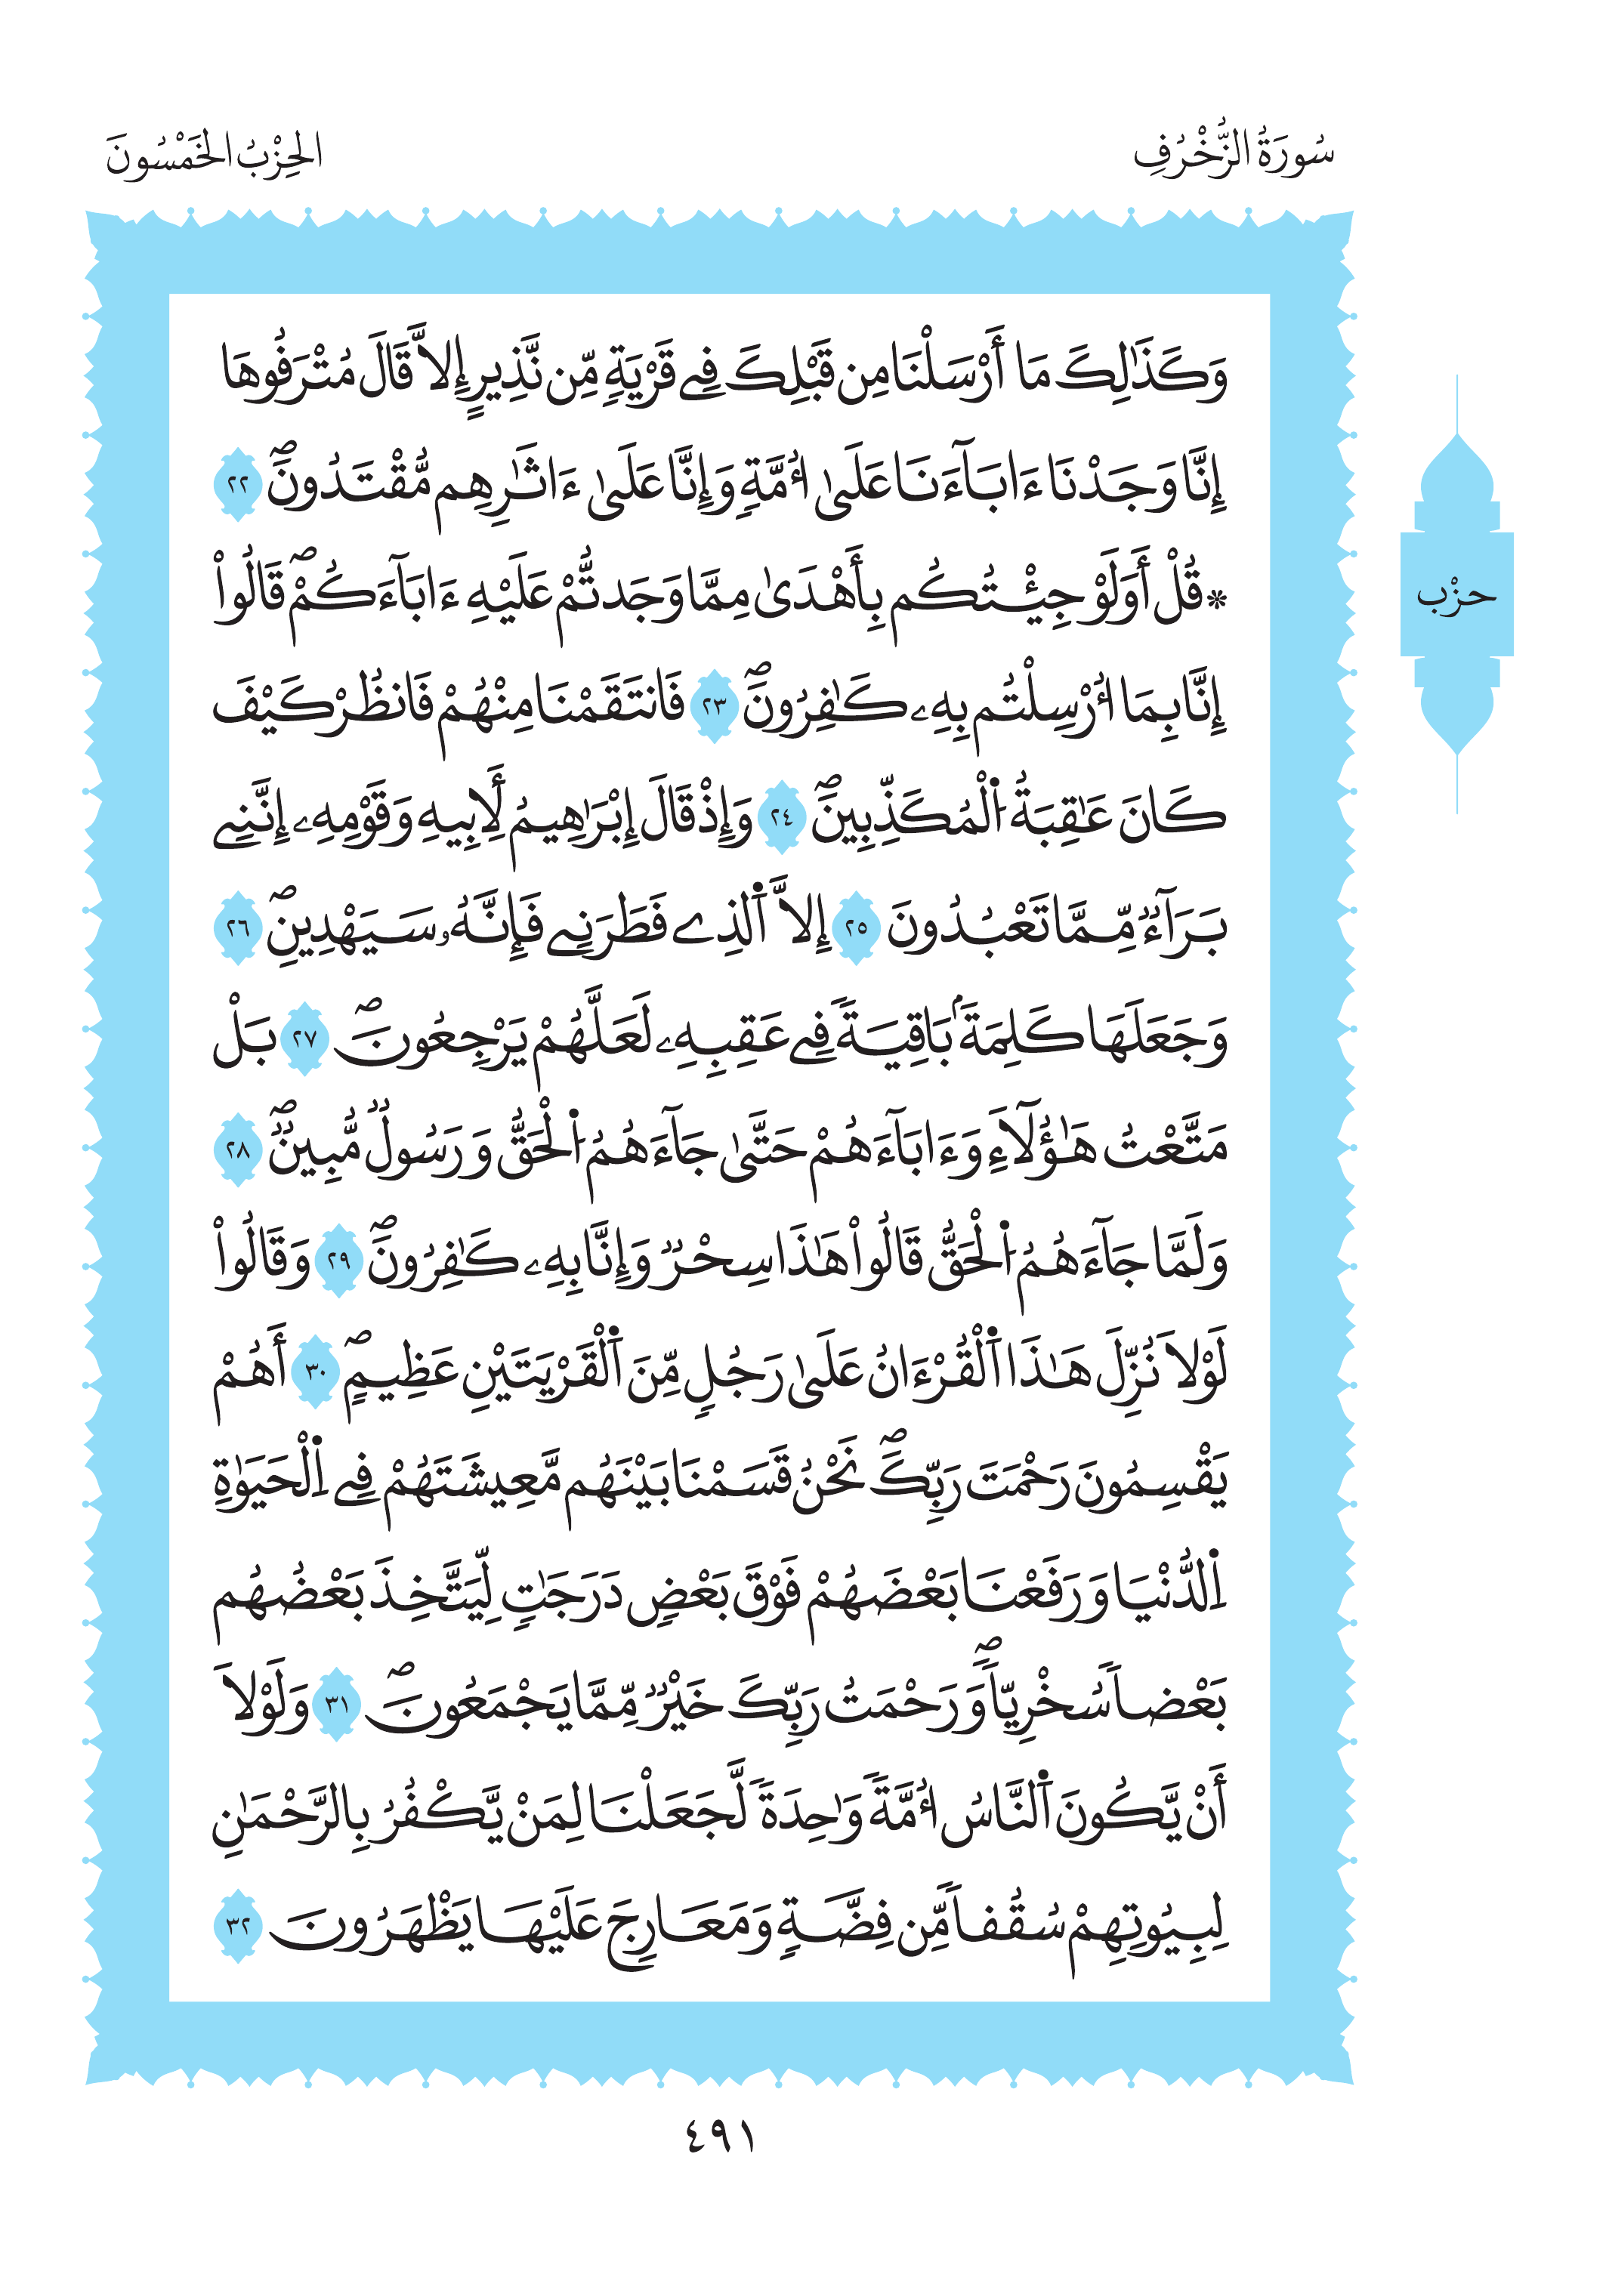 سُورَةُ الزُّخْرُفِ
الحِزْبُ الخَمْسُونَ
وَكَذَٰلِكَ مَا أَرْسَلْنَا مِن قَبْلِكَ فِے قَرْيَةٍ مِّن نَّذِيرٍ إِلاَّ قَالَ مُتْرَفُوهَا
إِنَّا وَجَدْنَا ءَابَآءَنَا عَلَىٰ أُمَّةٍ وَإِنَّا عَلَىٰ ءَاثَٰرِهِم مُّقْتَدُونَۖ ٢٢
* قُلْ أَوَلَوْ جِئْتُكُم بِأَهْدَىٰ مِمَّا وَجَدتُّمْ عَلَيْهِ ءَابَآءَكُمْۖ قَالُواْ
إِنَّا بِمَا أُرْسِلْتُم بِهِۦ كَٰفِرُونَۖ ٢٣ فَانتَقَمْنَا مِنْهُمْ فَانظُرْ كَيْفَ
كَانَ عَٰقِبَةُ اُ۬لْمُكَذِّبِينَۖ ٢٤ وَإِذْ قَالَ إِبْرَٰهِيمُ لِأَبِيهِ وَقَوْمِهِۦ إِنَّنِے
بَرَآءٌ مِّمَّا تَعْبُدُونَ ٢٥ إِلاَّ اَ۬لذِے فَطَرَنِے فَإِنَّهُۥ سَيَهْدِينِۖ ٢٦
وَجَعَلَهَا كَلِمَةَۢ بَاقِيَةً فِے عَقِبِهِۦ لَعَلَّهُمْ يَرْجِعُونَۖ ٢٧ بَلْ
مَتَّعْتُ هَٰؤُلَآءِ وَءَابَآءَهُمْ حَتَّىٰ جَآءَهُمُ اُ۬لْحَقُّ وَرَسُولٌ مُّبِينٌۖ ٢٨
وَلَمَّا جَآءَهُمُ اُ۬لْحَقُّ قَالُواْ هَٰذَا سِحْرٌ وَإِنَّا بِهِۦ كَٰفِرُونَۖ ٢٩ وَقَالُواْ
لَوْلاَ نُزِّلَ هَٰذَا اَ۬لْقُرْءَانُ عَلَىٰ رَجُلٍ مِّنَ اَ۬لْقَرْيَتَيْنِ عَظِيمٍۖ ٣٠ أَهُمْ
يَقْسِمُونَ رَحْمَتَ رَبِّكَۖ نَحْنُ قَسَمْنَا بَيْنَهُم مَّعِيشَتَهُمْ فِے اِ۬لْحَيَوٰةِ
اِ۬لدُّنْيَا وَرَفَعْنَا بَعْضَهُمْ فَوْقَ بَعْضٍ دَرَجَٰتٍ لِّيَتَّخِذَ بَعْضُهُم
بَعْضاً سُخْرِيّاًۖ وَرَحْمَتُ رَبِّكَ خَيْرٌ مِّمَّا يَجْمَعُونَۖ ٣١ وَلَوْلاَ
أَنْ يَّكُونَ اَ۬لنَّاسُ أُمَّةً وَٰحِدَةً لَّجَعَلْنَا لِمَنْ يَّكْفُرُ بِالرَّحْمَٰنِ
لِبِيُوتِهِمْ سُقُفاً مِّن فِضَّةٍ وَمَعَارِجَ عَلَيْهَا يَظْهَرُونَ ٣٢
حزْب
٤٩١